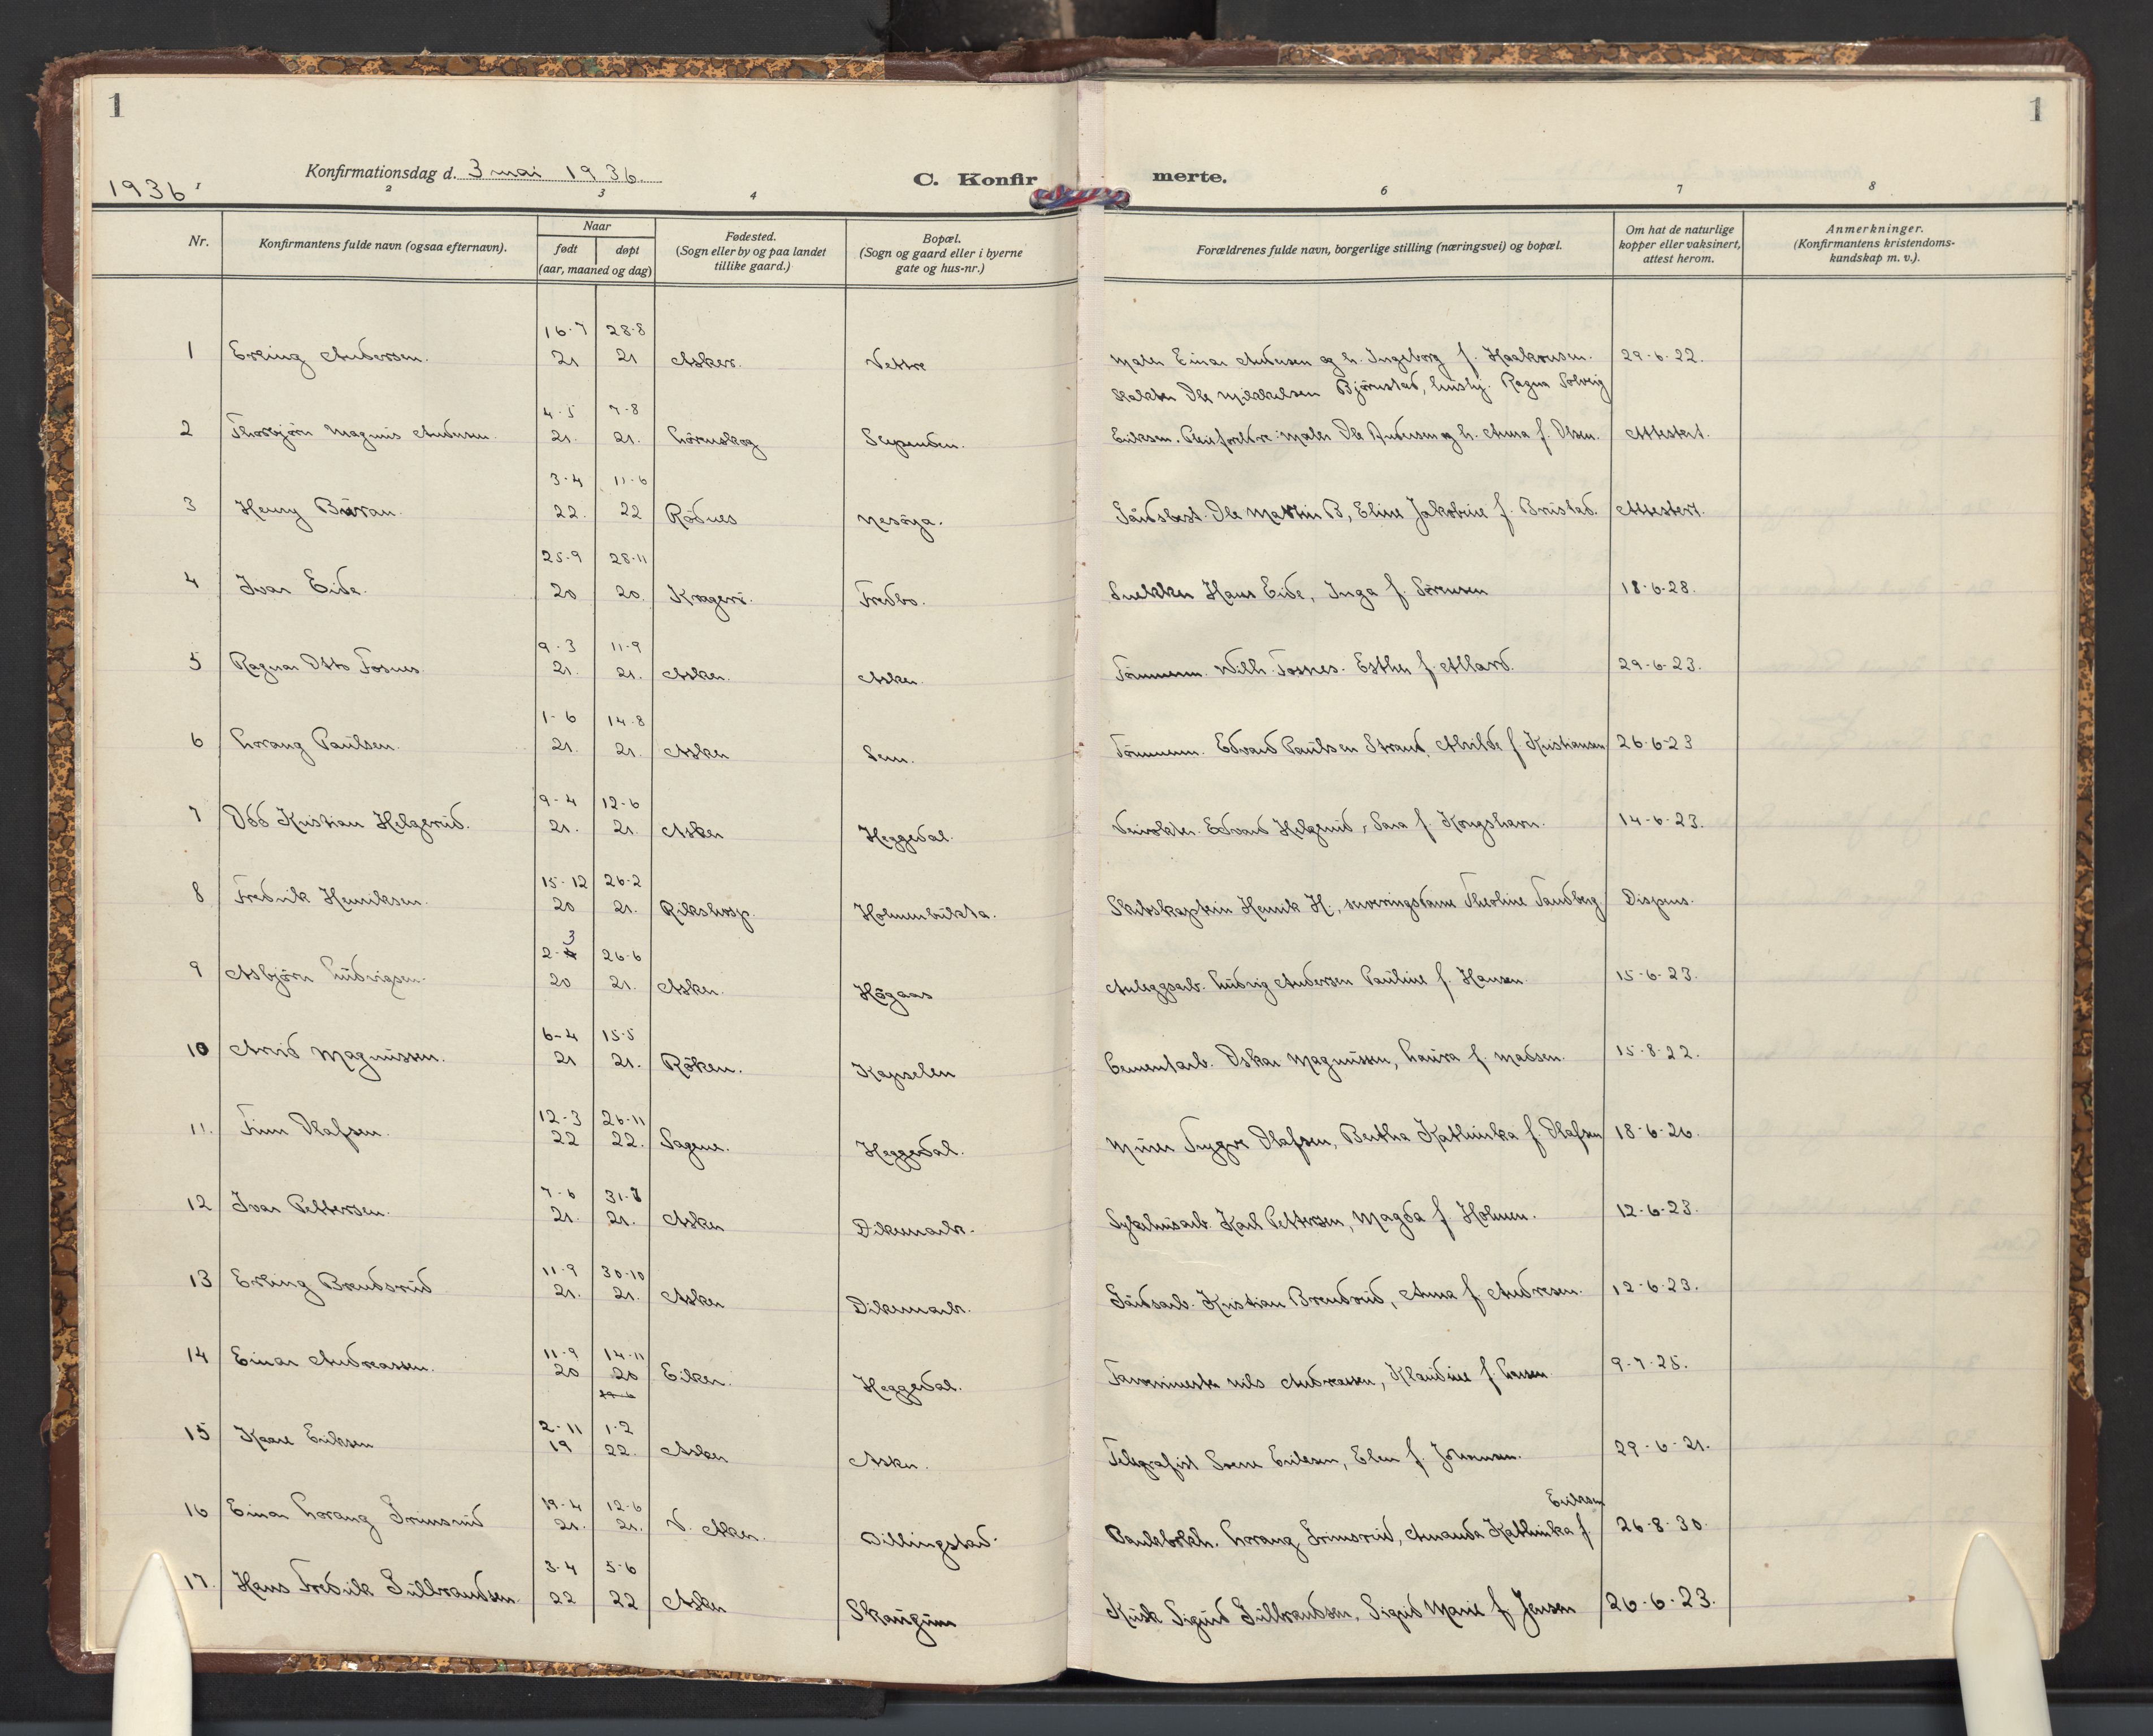 1
1
1936
Konfirmationsdag d. 3 mai 1936.
C. Konfirmerte.
2 3 4 6 7 8
Nr.
Konfirmantens fulde navn (ogsaa efternavn).
Naar
født døpt
(aar, maaned og dag)
Fødested.
(Sogn eller by og paa landet
tillike gaard.)
Bopæl.
(Sogn og gaard eller i byerne
gate og hus-nr.)
Forældrenes fulde navn, borgerlige stilling (næringsvei) og bopæl.
Om hat de naturlige
kopper eller vaksinert,
attest herom.
Anmerkninger.
(Konfirmantens kristendoms-
kundskap m. v.).
16-7 28-8
1 Erling Andersen. 21 21 Asker. Vettre Maler Einar Andersen og h. Ingeborg f. Haakonsen. 29-6-22.
Ole Mikkelsen Bjørnstad, hushj. Ragna Solveig
4-5 7-8
2 Thorbjørn Magnus Andersen. 21. 21. Lørenskog Eriksen. Pleieforeldre: Maler Ole Andersen og h. Anna f. Olsen. Attestert.
3-4 11-6
3 Henry Buran. 22. 22 Rødnes Nesøya. Gårdsbest. Ole Martin B, Eline Jakobine f. Bristad. Attestert.
25-9 28-11
4 Ivar Eide. 20 20. Kragerø. Fredbo. Snekker Hans Eide, Inga f. Sørensen 18-6-28.
9-3 11-9
5 Ragnar Otto Fosnes. 21. 21. Asker. Asker. Tømmerm. Wilh. Fosnes. Esther f. Allard. 29-6-23.
1-6 14-8
6 Lorang Paulsen. 21. 21. Asker Sem. Tømmerm. Edvard Paulsen Strand, Alvilde f. Kristiansen 26-6-23
9-4 12-6
7 Odd Kristian Helgerud. 21. 21. Asker Heggedal. Veivokter. Edvard Helgerud, Sara f. Kongshavn. 14-6-23.
15-12 26-2
8 Fredrik Henriksen. 20 21. Rikshosp. Holmenbukta. Skibskaptein Henrik H., serveringsdame Theoline Sandberg Dispens.
3
2-4 26-6
9 Asbjørn Ludvigsen. 20 21. Asker. Høgaas Anleggsarb. Ludvig Andersen Pauline f. Hansen. 15-6-23.
6-4 15-5
10 Arvid Magnussen. 21 21. Røken. Kapselen Cementarb. Oskar Magnussen, Laura f. Madsen. 15-8-22.
12-3 26-11
11. Finn Olafsen. 22 22. Sagene. Heggedal. Murer Trygve Olafsen, Bertha Kathinka f. Olafsen 18-6-26.
7-6 31-7
12 Ivar Pettersen. 21. 21. Asker Dikemark. Sykehusarb. Karl Pettersen, Magda f. Holmen. 12-6-23.
11-9 30-10
13 Erling Brendsrud 21. 21. Asker Dikemark. Gårdsarb. Kristian Brendsrud, Anna f. Andresen. 12-6-23.
11-9 14-11
14 Einar Andreassen. 20 20 Eiker. Heggedal. Nils Andreassen, Klaudine f. Larsen 9-7-25.
2-11 1-2
15 Kaare Eriksen 19 22. Asker Asker. Telegrafist Sverre Eriksen, Ellen f. Johansen. 29-6-21.
19-4 12-6 Eriksen
16 Einar Lorang Grimsrud 21. 21. V. Aker. Billingstad. Bankbokh. Lorang Grimsrud, Amanda Kathinka f. 26-8-30.
3-4 5-6
17. Hans Fredrik Gulbrandsen. 22 22 Asker Skaugum Kusk Sigurd Gulbrandsen, Sigrid Marie f. Jensen 26-6-23.